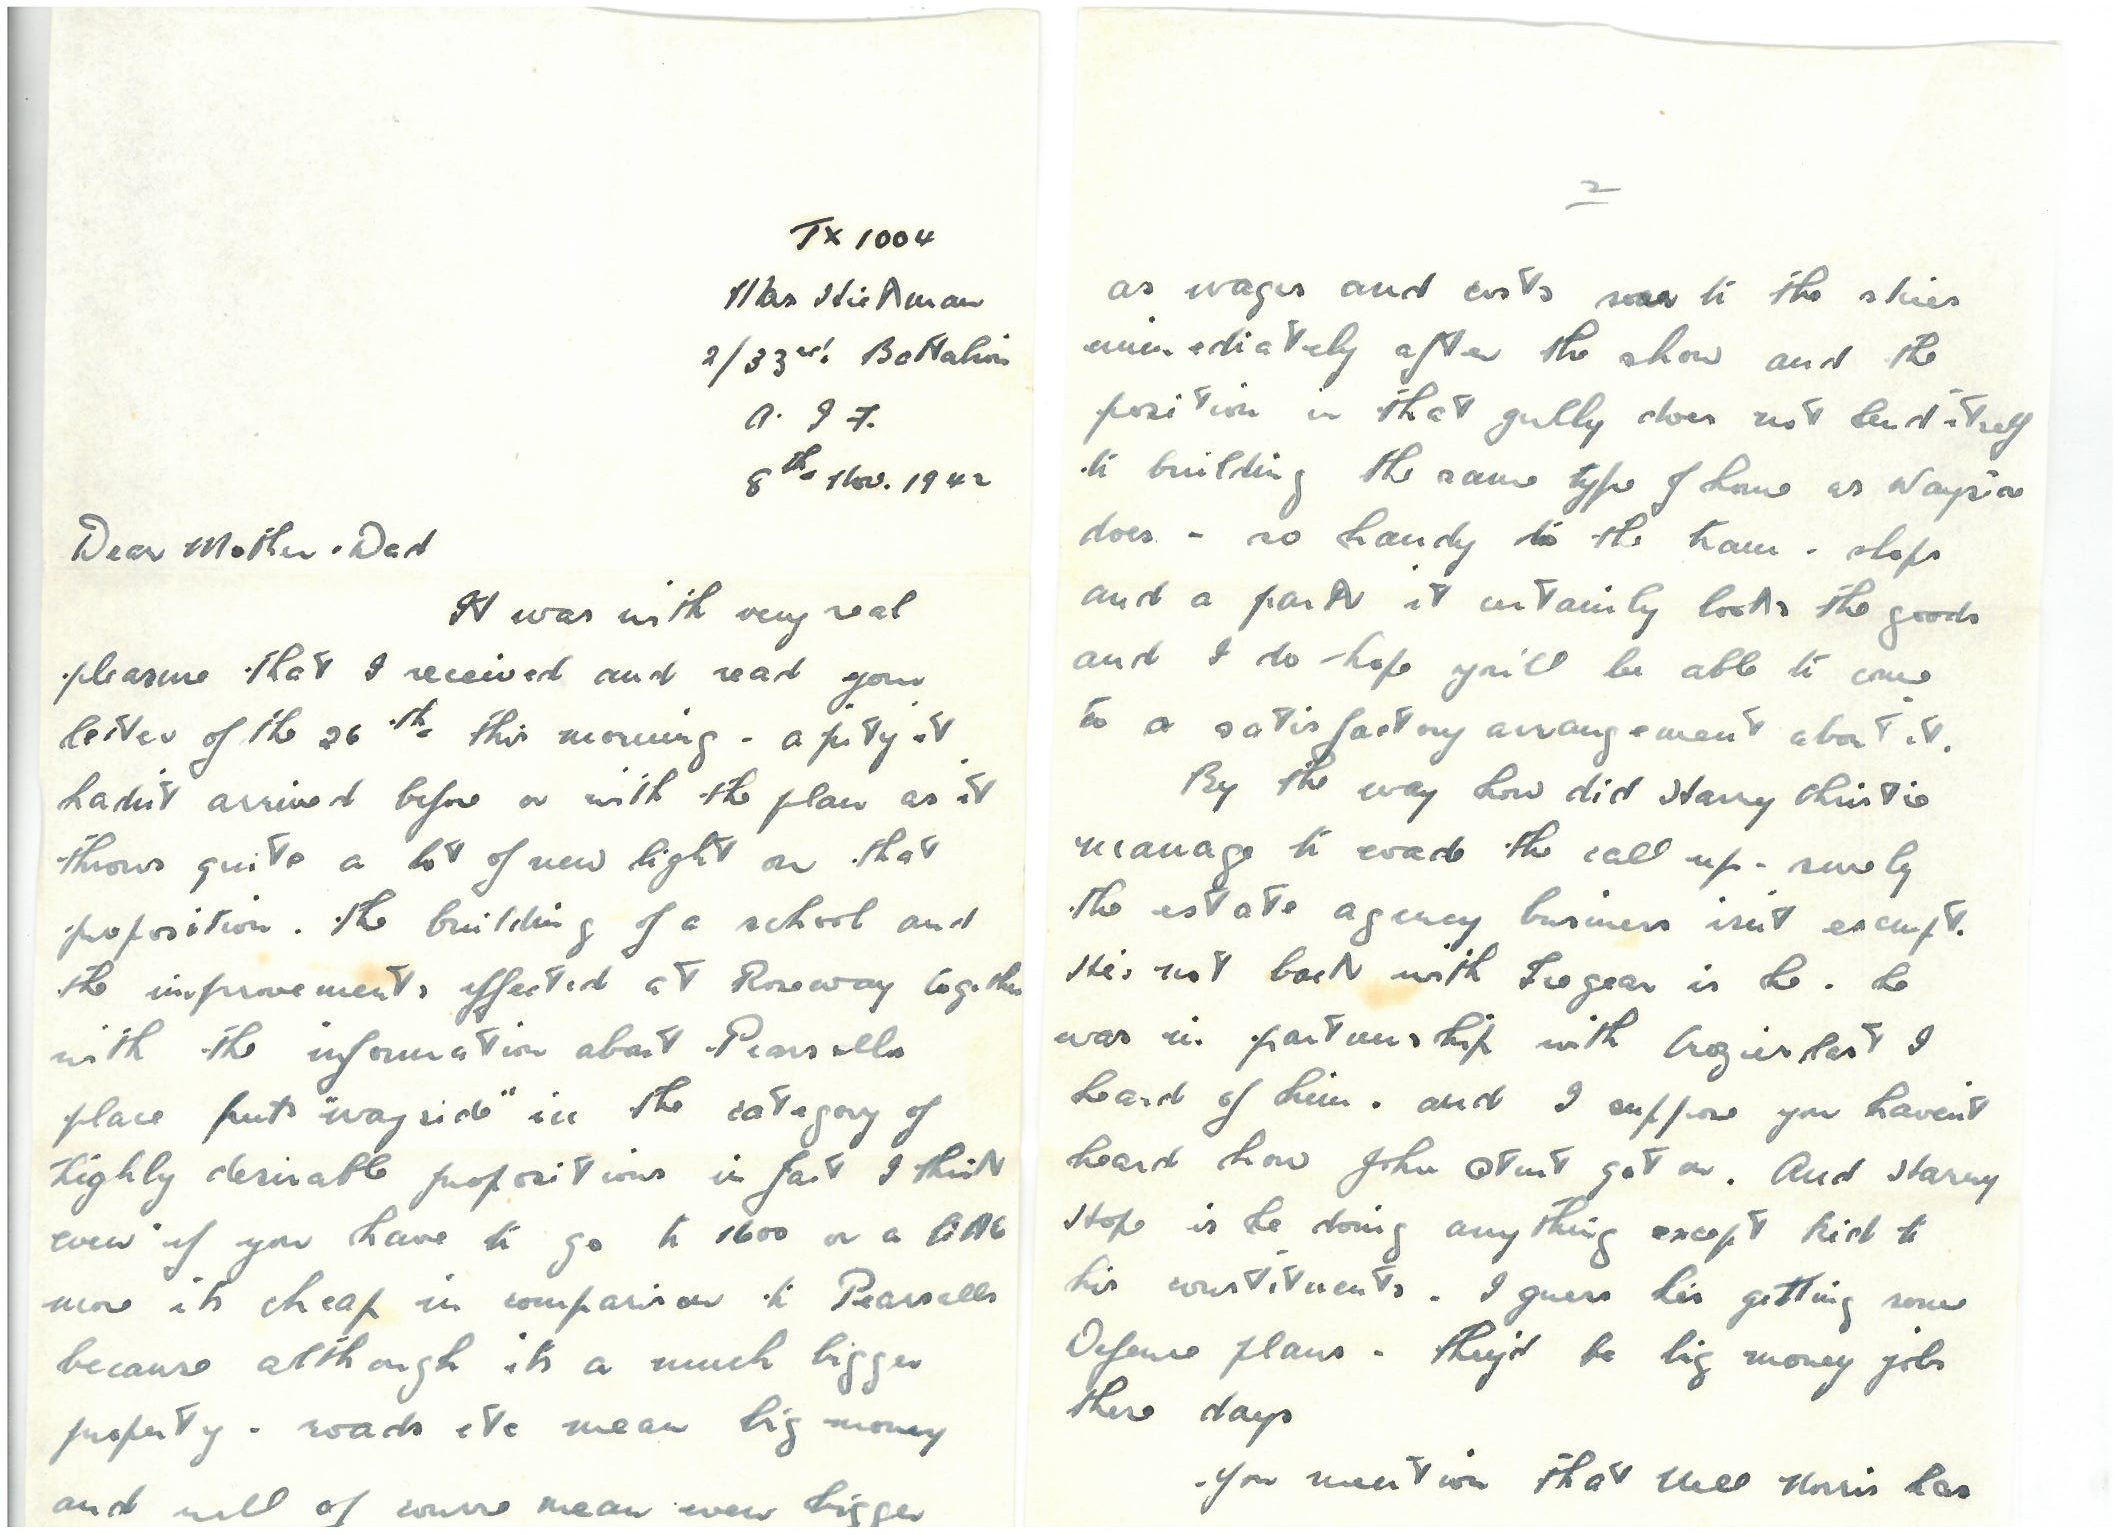 TX 1004
Max Hickman
2/33rd. Battalion
A. I F.
8th Nov. 1942
Dear Mother & Dad
It was with very real
pleasure that I received and read your
letter of the 26th this morning - a pity it
hadn't arrived before or with the plan as it
throws quite a lot of new light on that
proposition. The building of a school and
the improvements effected at Roseway together
with the information about Pearsells
place puts "Wayside" in the category of
highly desirable propositions in fact I think
even if you have to go to 1600 or a little
more its cheap in comparison to Pearsells
because although its a much bigger
property - roads etc mean big money
and will of course mean even bigger
2
as wages and costs soar to the skies
immediately after the show and the
position in that gully does not lend itself
to building the same type of home as Wayside
does - so handy to the tram - shops
and a park it certainly looks the goods
and I do hope you'll be able to come
to a satisfactory arrangement about it.
By the way how did Harry Christie
manage to evade the call up - surely
the estate agency business isn't exempt.
He's not back with Tregear is he. He
was in partnership with Crozier last I
heard of him. And I suppose you haven't
heard how John got on. And Harry
Hope is he doing anything except kid to
his constituents. I guess his getting some
Defence plans - they'd be big money jobs
these days
You mention that Nell Norris has